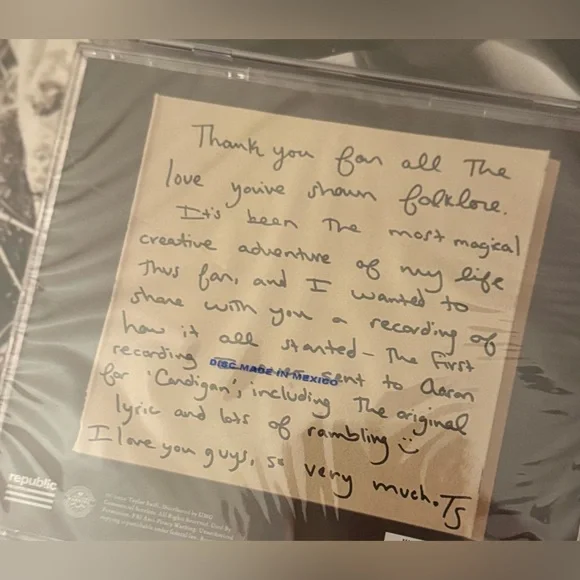 Thank you for all The
love you've shown folklore.
It's been The most magical
creative adventure of my life
Thus far, and I wanted to
share with you a recording of
how it all started - The First
recording sent to Aaron
DISC MADE IN MEXICO
for 'Cardigan', including The original
lyric and lots of rambling :)
I love you guys, so very much. TS
republic